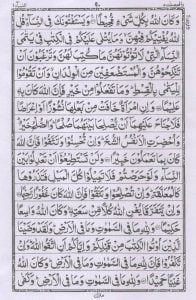 ۹۰
وَكَانَ اللّٰهُ بِكُلِّ شَیْءٍ مُّحِیْطًا وَیَسْتَفْتُوْنَكَ فِی
النِّسَآءِ قُلِ اللّٰهُ یُفْتِیْكُمْ فِیْهِنَّ وَمَا یُتْلٰى عَلَیْكُمْ فِی الْكِتٰبِ فِیْ یَتٰمَى
النِّسَآءِ الّٰتِیْ لَا تُؤْتُوْنَهُنَّ مَا كُتِبَ لَهُنَّ وَتَرْغَبُوْنَ اَنْ
تَنْكِحُوْهُنَّ وَالْمُسْتَضْعَفِیْنَ مِنَ الْوِلْدَانِ وَاَنْ تَقُوْمُوْا
لِلْیَتٰمٰى بِالْقِسْطِ وَمَا تَفْعَلُوْا مِنْ خَیْرٍ فَاِنَّ اللّٰهَ كَانَ بِهٖ
عَلِیْمًا وَاِنِ امْرَاَةٌ خَافَتْ مِنْۢ بَعْلِهَا نُشُوْزًا اَوْ اِعْرَاضًا
فَلَا جُنَاحَ عَلَیْهِمَاۤ اَنْ یُّصْلِحَا بَیْنَهُمَا صُلْحًا وَالصُّلْحُ خَیْرٌ
وَاُحْضِرَتِ الْاَنْفُسُ الشُّحَّ وَاِنْ تُحْسِنُوْا وَتَتَّقُوْا فَاِنَّ اللّٰهَ
كَانَ بِمَا تَعْمَلُوْنَ خَبِیْرًا وَلَنْ تَسْتَطِیْعُوْۤا اَنْ تَعْدِلُوْا بَیْنَ
النِّسَآءِ وَلَوْ حَرَصْتُمْ فَلَا تَمِیْلُوْا كُلَّ الْمَیْلِ فَتَذَرُوْهَا
كَالْمُعَلَّقَةِ وَاِنْ تُصْلِحُوْا وَتَتَّقُوْا فَاِنَّ اللّٰهَ كَانَ غَفُوْرًا رَّحِیْمًا
وَاِنْ یَّتَفَرَّقَا یُغْنِ اللّٰهُ كُلًّا مِّنْ سَعَتِهٖ وَكَانَ اللّٰهُ وَاسِعًا
حَكِیْمًا وَلِلّٰهِ مَا فِی السَّمٰوٰتِ وَمَا فِی الْاَرْضِ وَلَقَدْ وَصَّیْنَا
الَّذِیْنَ اُوْتُوا الْكِتٰبَ مِنْ قَبْلِكُمْ وَاِیَّاكُمْ اَنِ اتَّقُوا اللّٰهَ وَاِنْ
تَكْفُرُوْا فَاِنَّ لِلّٰهِ مَا فِی السَّمٰوٰتِ وَمَا فِی الْاَرْضِ وَكَانَ اللّٰهُ
غَنِیًّا حَمِیْدًا وَلِلّٰهِ مَا فِی السَّمٰوٰتِ وَمَا فِی الْاَرْضِ وَكَفٰى